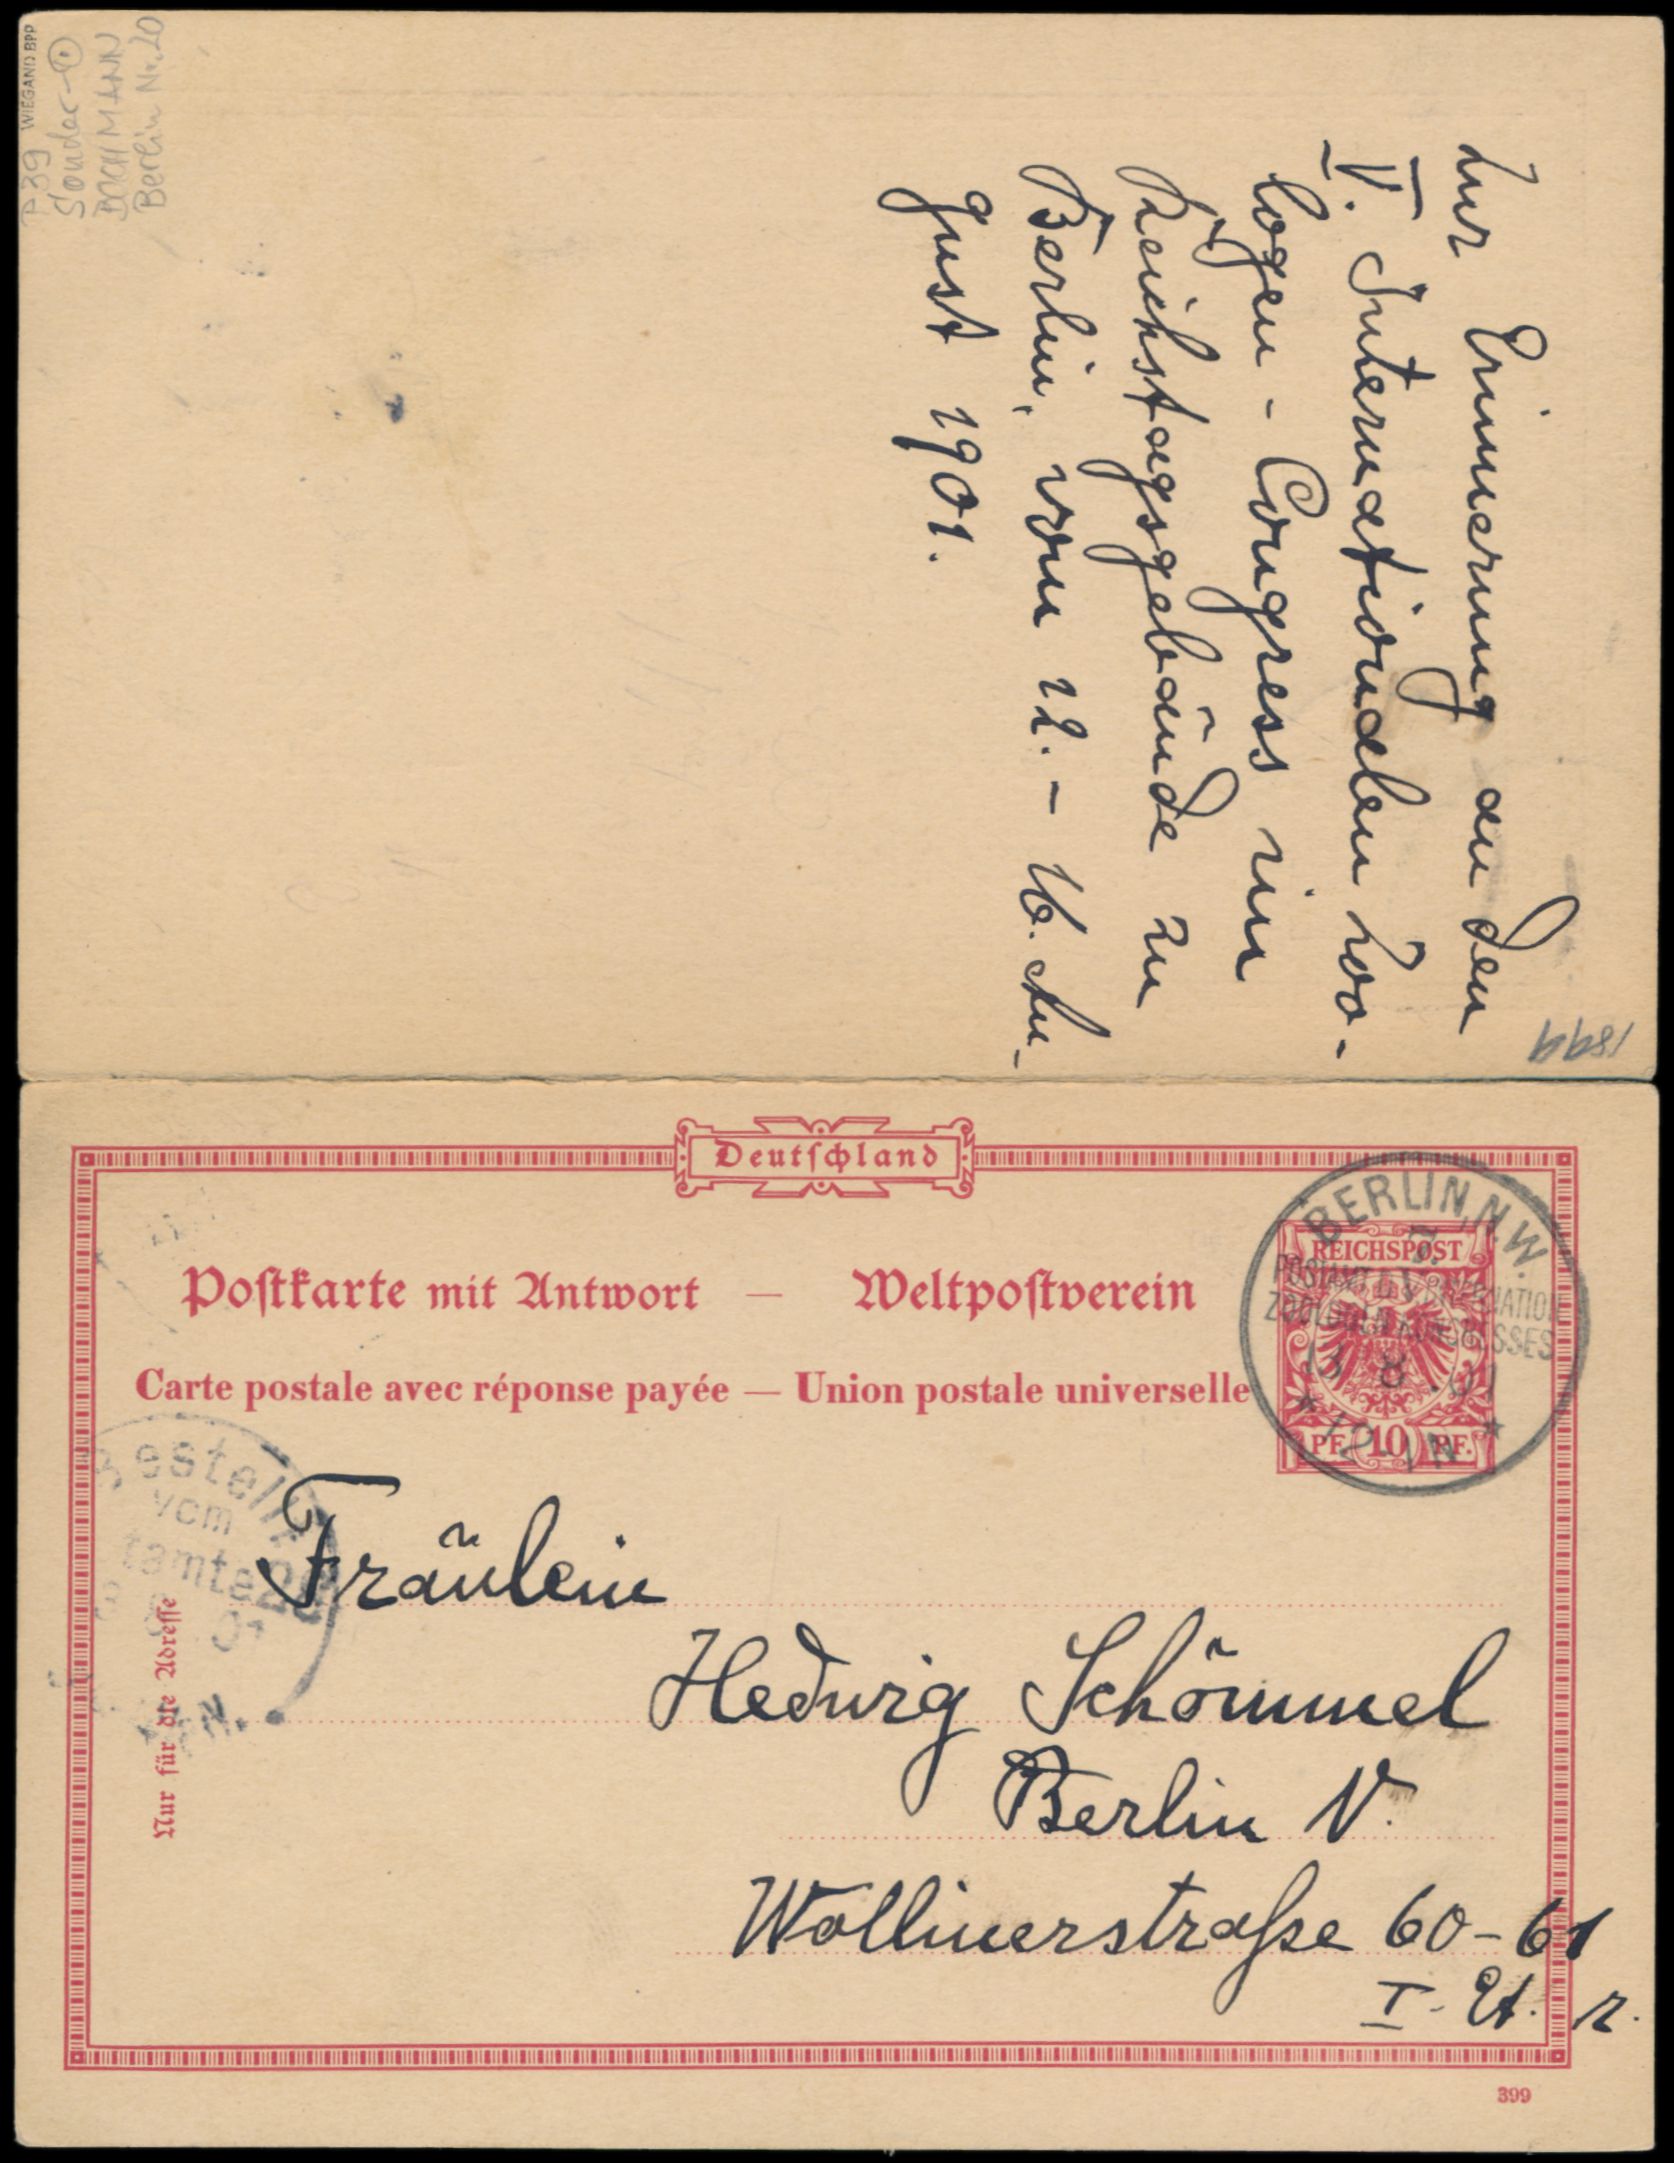 P 39 WIEGAND BPP
Sonder-
BOCHMANN
Berlin Nr. 20
Zur Erinnerung an den
V. Internationalen Zoo-
logen-Congress im
Reichstagsgebäude zu
Berlin, vom 12. - 16. Au-
gust 1901.
1899
Deutschland
Postkarte mit Antwort — Weltpostverein
Carte postale avec réponse payée — Union postale universelle
BERLIN, N.W. 7.
POSTAMT D. V. INTERNATION.
ZOOLOGEN KONGRESSES
13 8 01
* 12-1N *
REICHSPOST
PF. 10 PF.
Bestellt
vom
Postamte
01
N.
Nur für die Adresse
Fräulein
Hedwig Schömmel
Berlin N.
Wollinerstraße 60-61
I. Et. r.
399